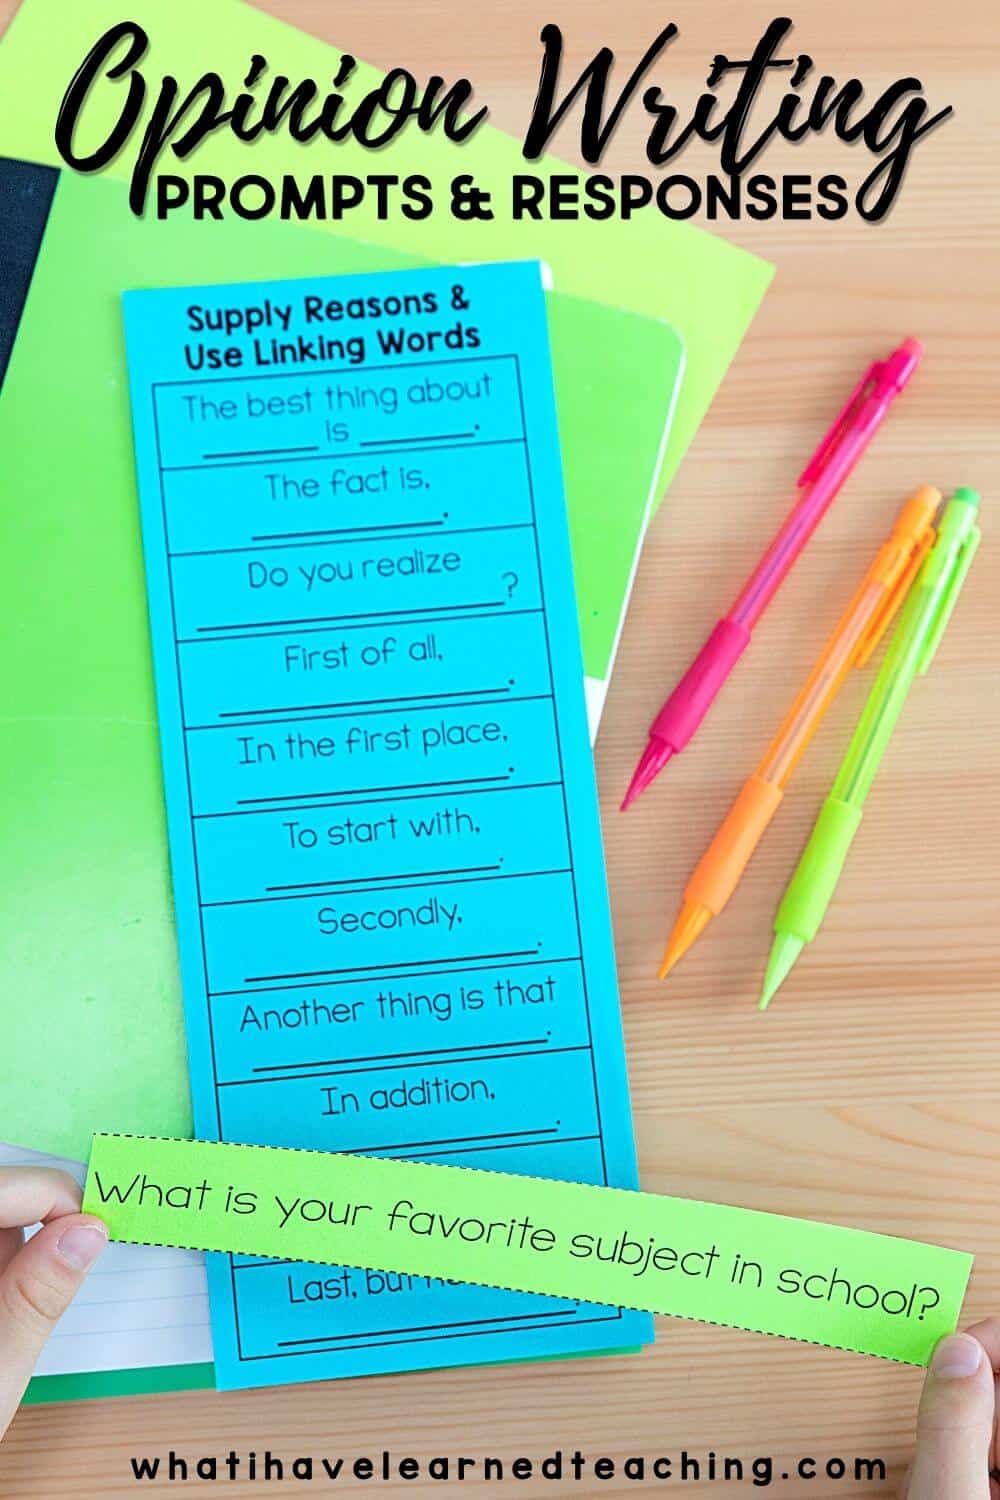 Opinion Writing
PROMPTS & RESPONSES
Supply Reasons &
Use Linking Words
The best thing about
______ is ______.
The fact is,
______.
Do you realize
______?
First of all,
______.
In the first place,
______.
To start with,
______.
Secondly,
______.
Another thing is that
______.
In addition,
______.
What is your favorite subject in school?
Last, but
______.
whatihavelearnedteaching.com